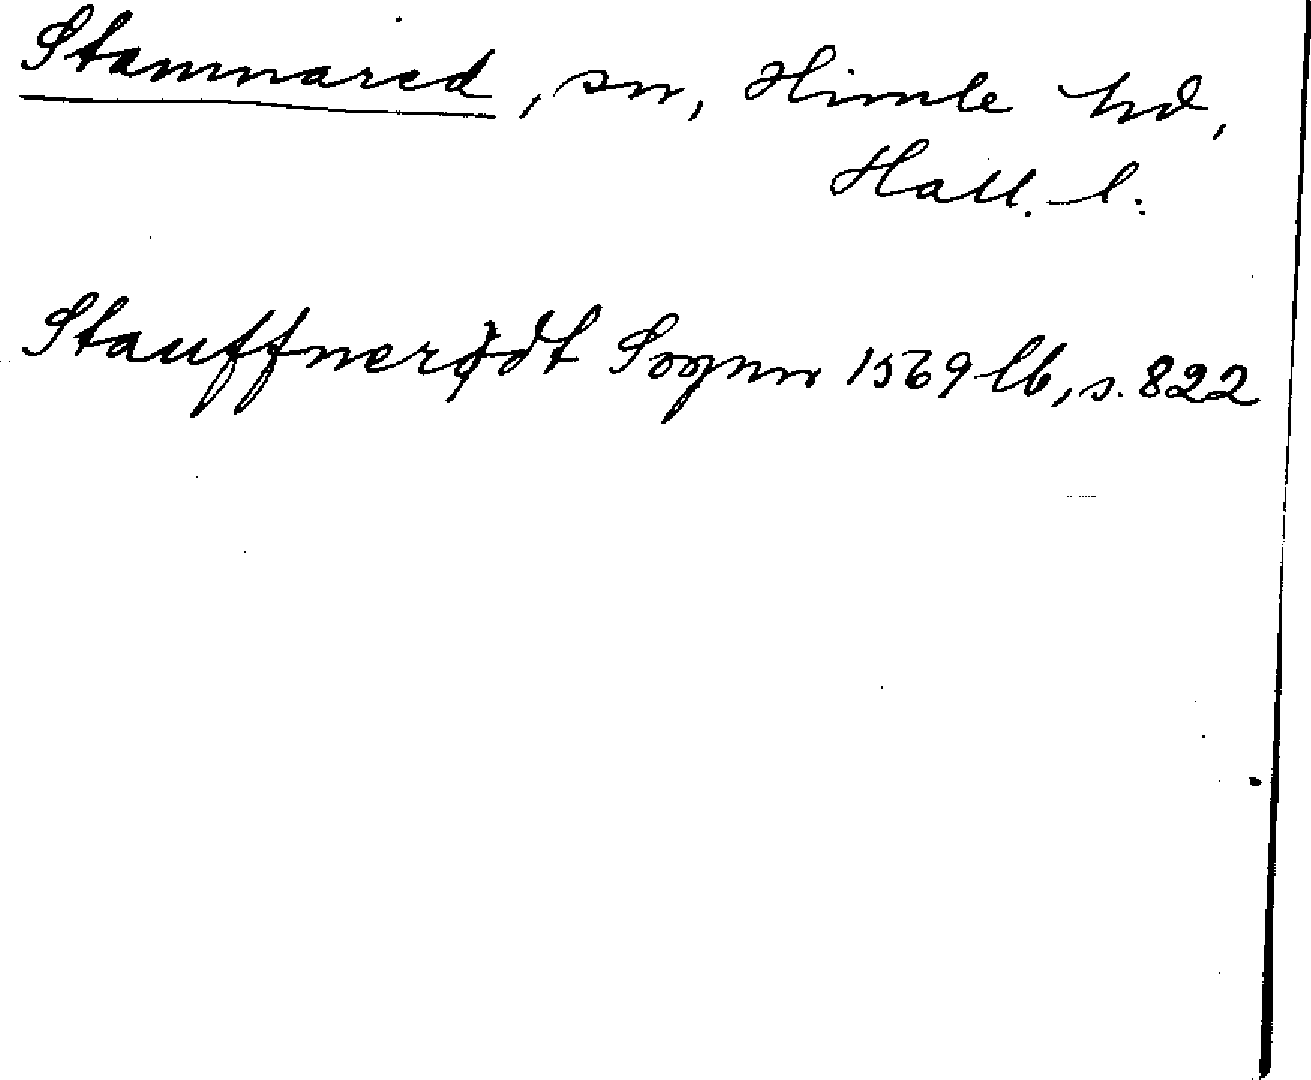 Stamnared, sn, Himle hd,
Hall. l.
Stauffnerødt Sognn 1569 lb, s. 822